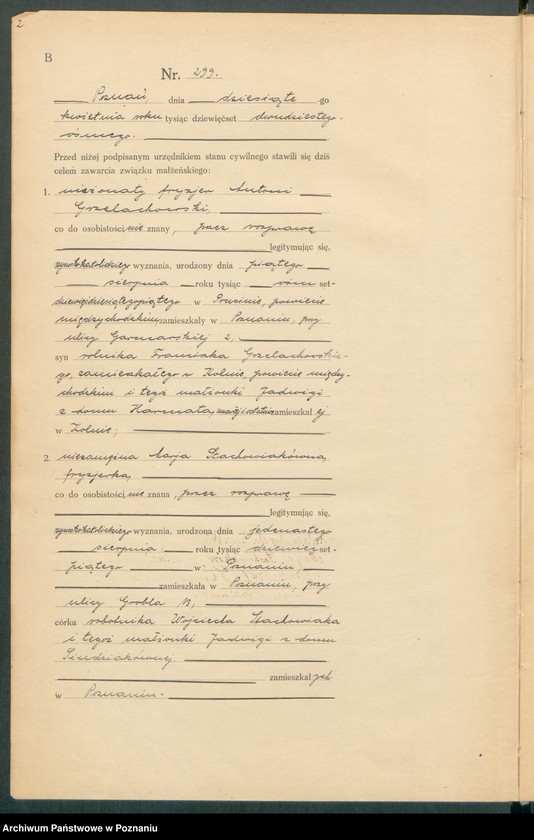 2
B
Nr. 299.
Poznań, dnia dziesiąte go
kwietnia roku tysiąc dziewięćset dwudziestego
ósmego.
Przed niżej podpisanym urzędnikiem stanu cywilnego stawili się dziś
celem zawarcia związku małżeńskiego:
1. nieżonaty fryzjer Antoni
Grzelachowski,
co do osobistości nie znany, przez rozprawę
legitymując się,
rzymskokatolickiego wyznania, urodzony dnia piątego
sierpnia roku tysiąc ośm set-
dziewięćdziesiątego piątego w Prusimie, powiecie
międzychodzkim, zamieszkały w Poznaniu, przy
ulicy Garncarskiej 2,
syn rolnika Franciszka Grzelachowskie-
go, zamieszkałego w Kolnie, powiecie między-
chodzkim i tegoż małżonki Jadwigi
z domu Harmata, zamieszkał ej
w Kolnie;
2. niezamężna Marja Stachowiakówna,
fryzjerka,
co do osobistości nie znana, przez rozprawę
legitymując się,
rzymskokatolickiego wyznania, urodzona dnia jedenastego
sierpnia roku tysiąc dziewięć set-
piątego w Poznaniu,
zamieszkała w Poznaniu, przy
ulicy Grobla
córka robotnika Wojciecha Stachowiaka
i tegoż małżonki Jadwigi z domu
zamieszkał ych
w Poznaniu.
Archiwum Państwowe w Poznaniu